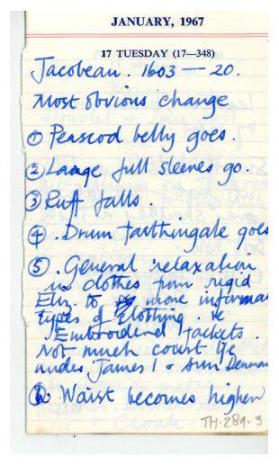 JANUARY, 1967
17 TUESDAY (17—348)
Jacobean. 1603 — 20.
Most obvious change
① Peascod belly goes.
② Large full sleeves go.
③ Ruff falls.
④ . Drum farthingale goes
⑤ . General relaxation
in clothes from rigid
Eliz. to more informal
types of clothing. ie
Embroidered Jackets.
Not much court life
under James I &
⑥ Waist becomes higher
TH-289-3